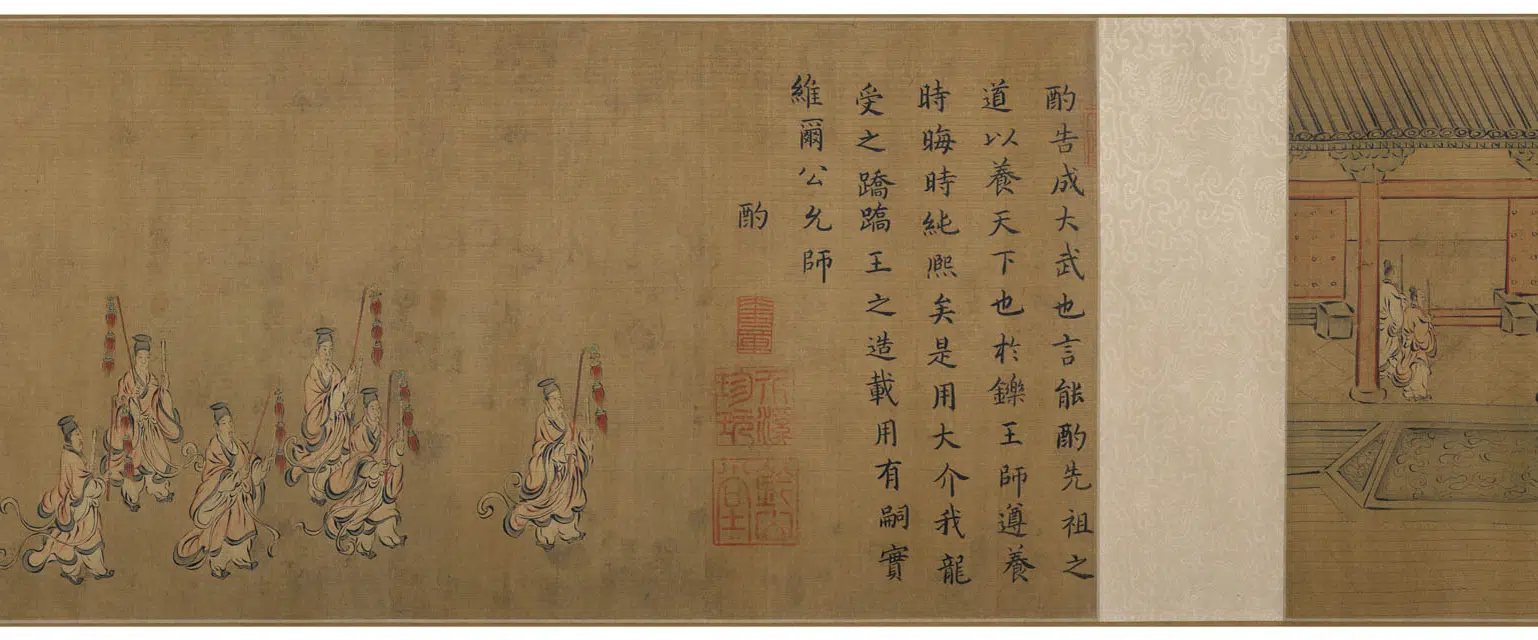 酌告成大武也言能酌先祖之
道以養天下也於鑠王師遵養
時晦時純熙矣是用大介我龍
受之蹻蹻王之造載用有嗣實
維爾公允師
酌